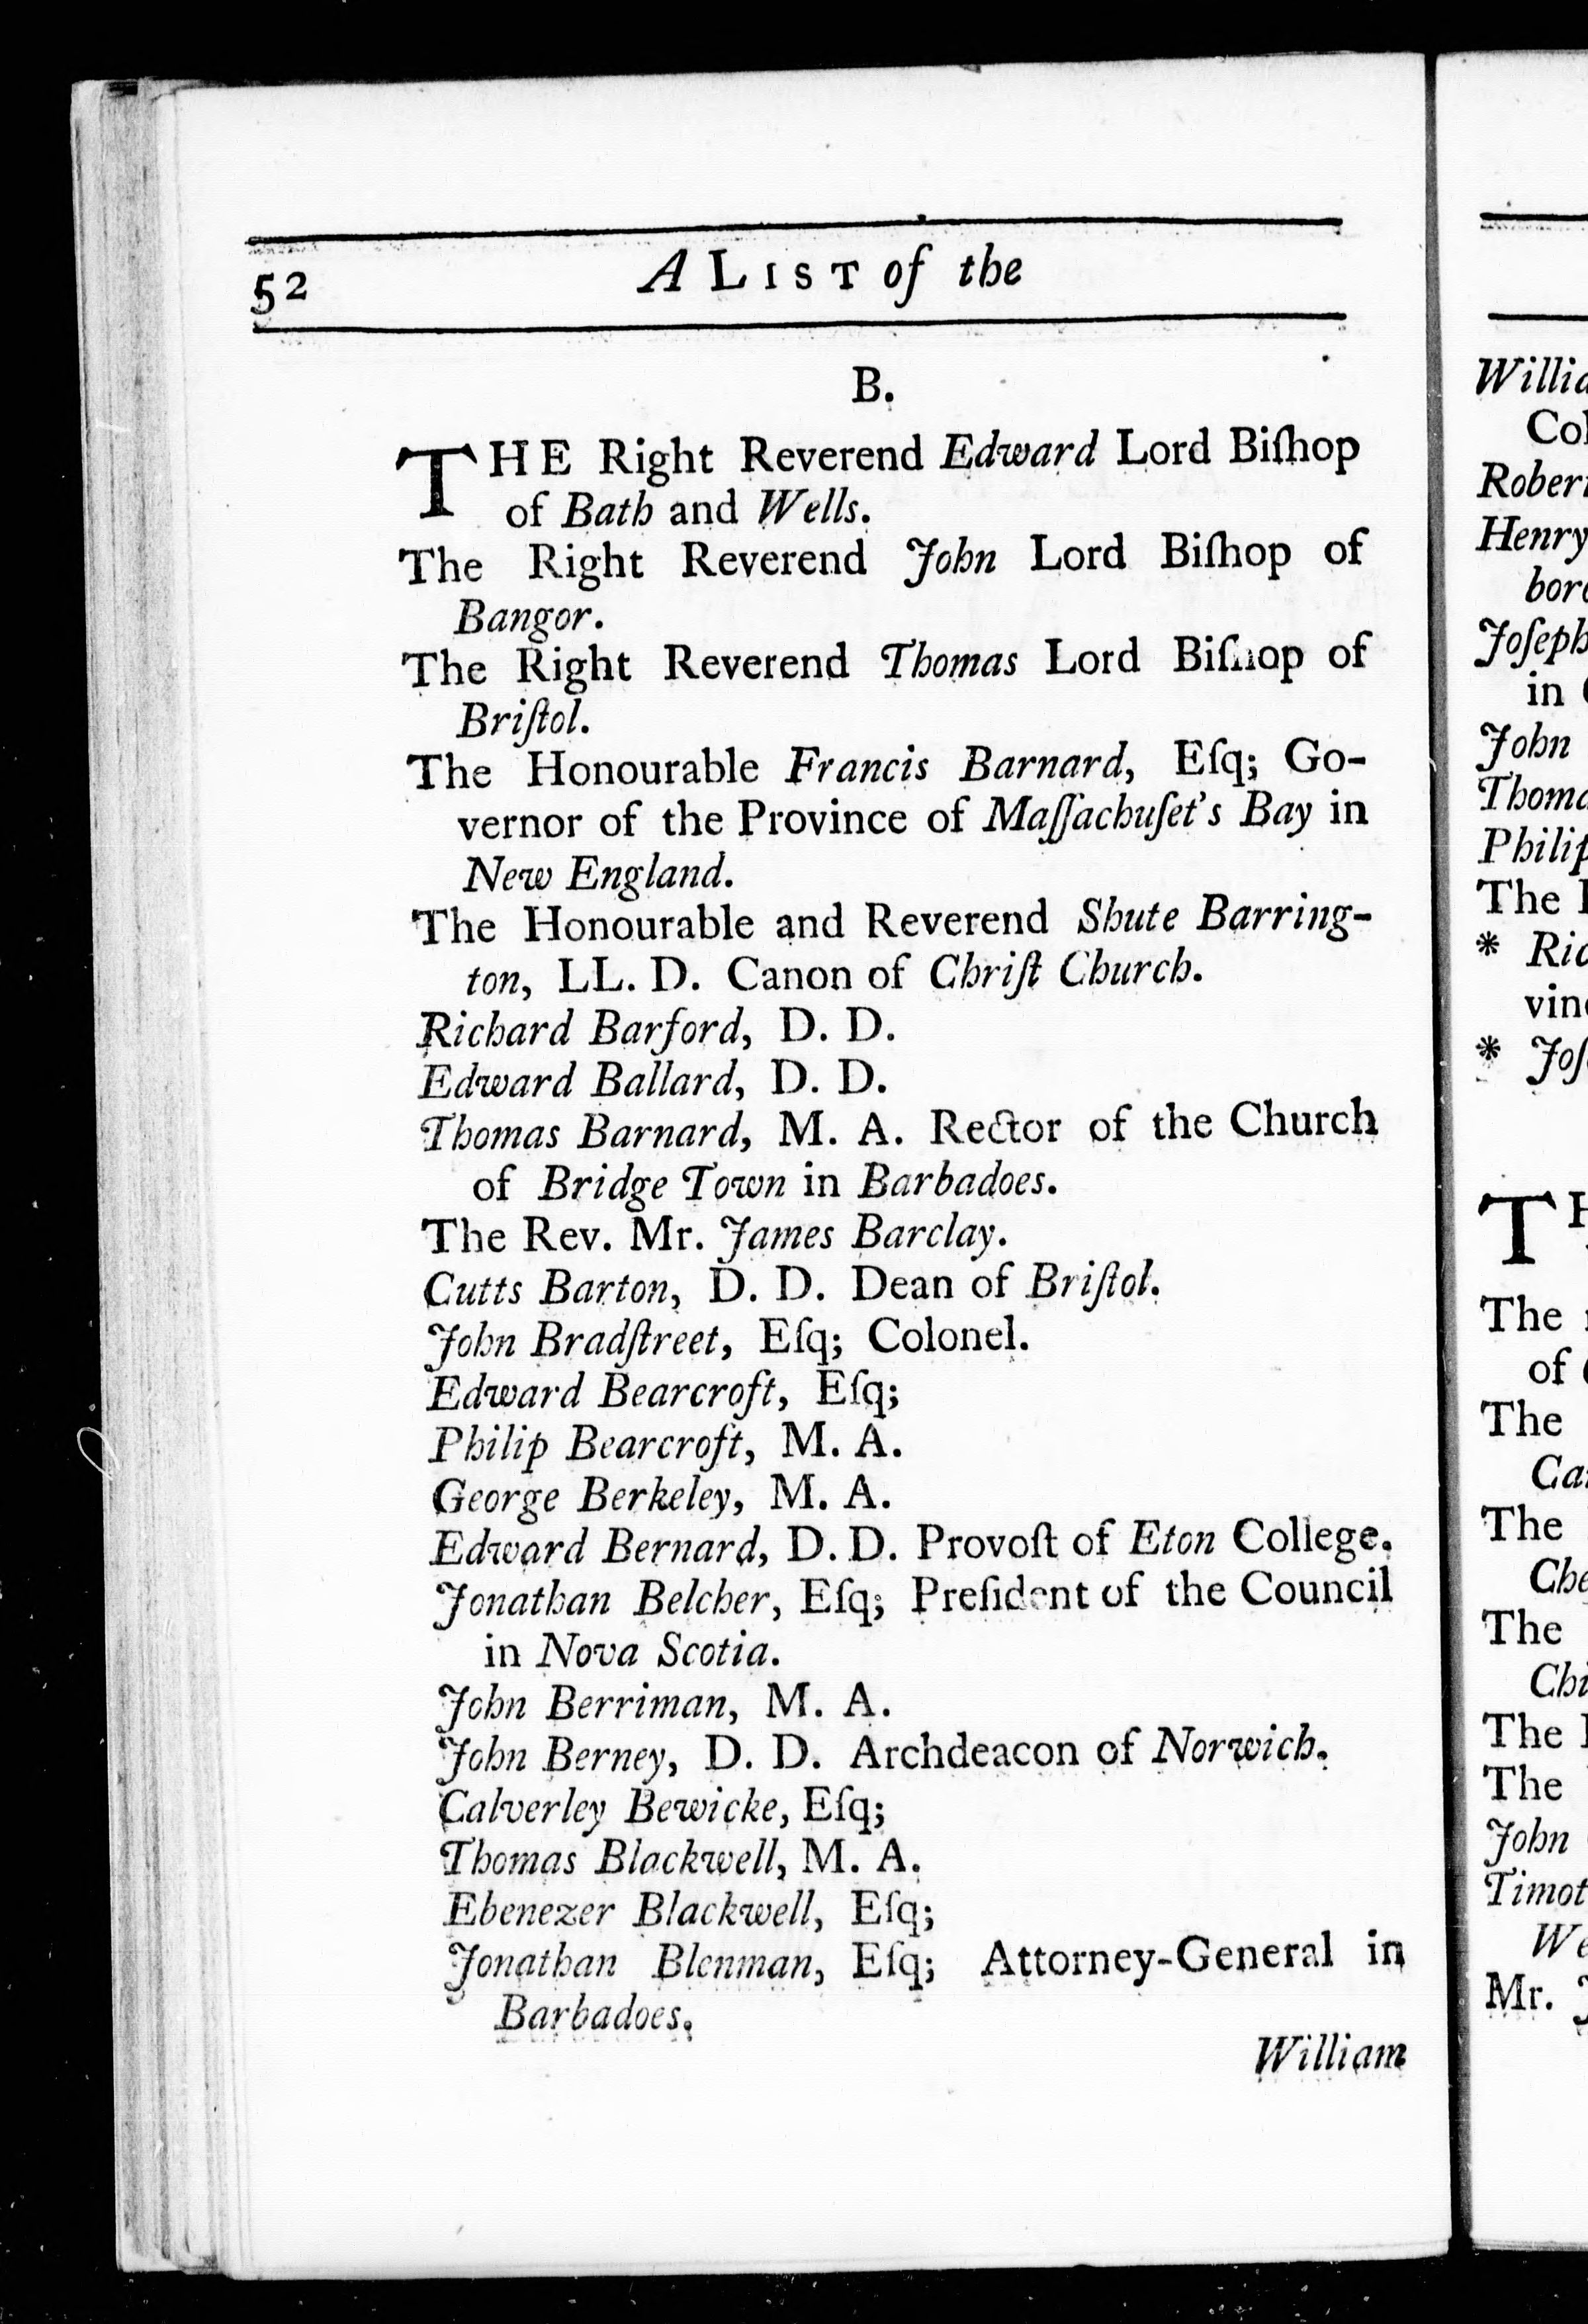 52 A LIST of the
B.
THE Right Reverend Edward Lord Biſhop
of Bath and Wells.
The Right Reverend John Lord Biſhop of
Bangor.
The Right Reverend Thomas Lord Biſhop of
Briſtol.
The Honourable Francis Barnard, Eſq; Go-
vernor of the Province of Maſſachuſet's Bay in
New England.
The Honourable and Reverend Shute Barring-
ton, LL. D. Canon of Chriſt Church.
Richard Barford, D. D.
Edward Ballard, D. D.
Thomas Barnard, M. A. Rector of the Church
of Bridge Town in Barbadoes.
The Rev. Mr. James Barclay.
Cutts Barton, D. D. Dean of Briſtol.
John Bradſtreet, Eſq; Colonel.
Edward Bearcroft, Eſq;
Philip Bearcroft, M. A.
George Berkeley, M. A.
Edward Bernard, D. D. Provoſt of Eton College.
Jonathan Belcher, Eſq; Preſident of the Council
in Nova Scotia.
John Berriman, M. A.
John Berney, D. D. Archdeacon of Norwich.
Calverley Bewicke, Eſq;
Thomas Blackwell, M. A.
Ebenezer Blackwell, Eſq;
Jonathan Blenman, Eſq; Attorney-General in
Barbadoes.
William
Henry
in
John
The
The
of
The
The
The
The
The
John
Mr.